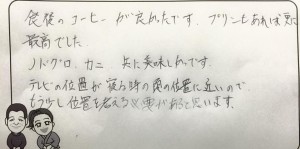 食後のコーヒーが良かったです。プリンもあれば更に
最高でした。
ノドグロ、カニ 共に美味しかったです。
テレビの位置が寝る時の頭の位置に近いので
もう少し位置を考える必要があると思います。